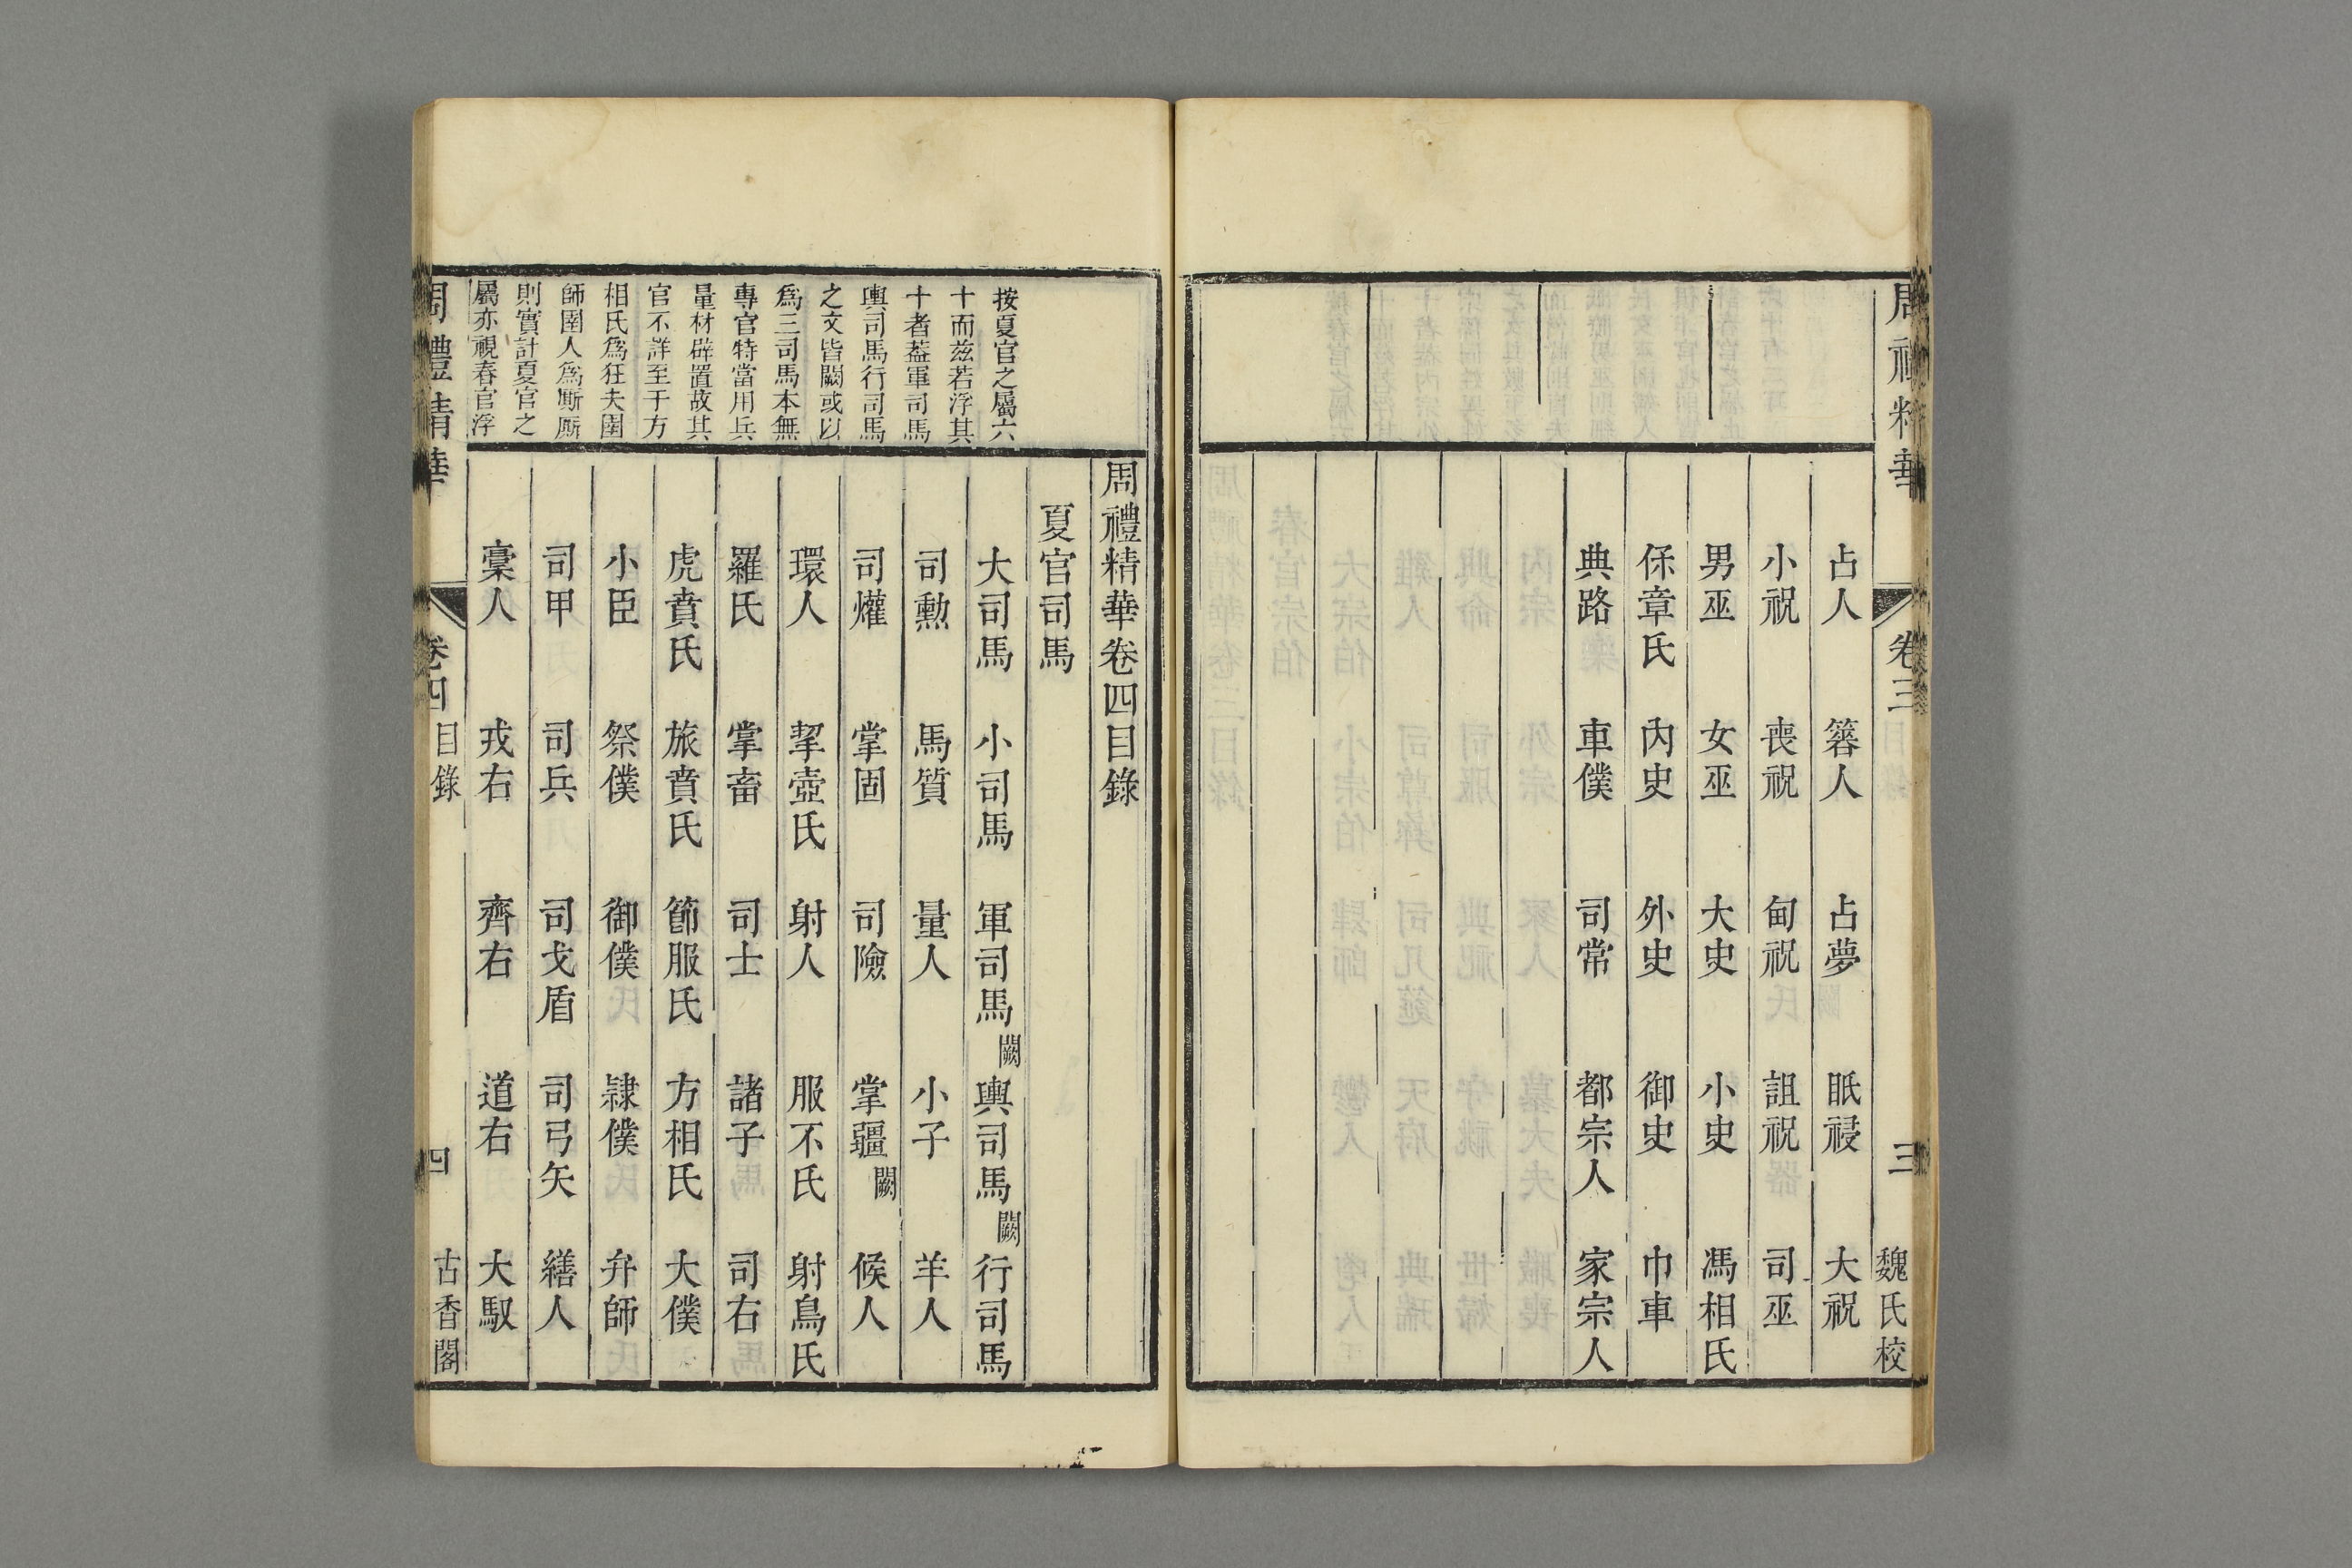 周禮精華 卷三 三 魏氏校
占人 簭人 占夢 眡祲 大祝
小祝 喪祝 甸祝 詛祝 司巫
男巫 女巫 大史 小史 馮相氏
保章氏 內史 外史 御史 巾車
典路 車僕 司常 都宗人 家宗人
按夏官之屬六
十而茲若浮其
十者葢軍司馬
輿司馬行司馬
之文皆闕或以
爲三司馬本無
專官特當用兵
量材辟置故其
官不詳至于方
相氏爲狂夫圉
師圉人爲厮厫
則實計夏官之
屬亦視春官浮
周禮精華卷四目錄
夏官司馬
大司馬 小司馬 軍司馬闕 輿司馬闕 行司馬
司勳 馬質 量人 小子 羊人
司爟 掌固 司險 掌疆闕 候人
環人 挈壺氏 射人 服不氏 射鳥氏
羅氏 掌畜 司士 諸子 司右
虎賁氏 旅賁氏 節服氏 方相氏 大僕
小臣 祭僕 御僕 隸僕 弁師
司甲 司兵 司戈盾 司弓矢 繕人
稾人 戎右 齊右 道右 大馭
周禮精華 卷四 目錄 四 古香閣